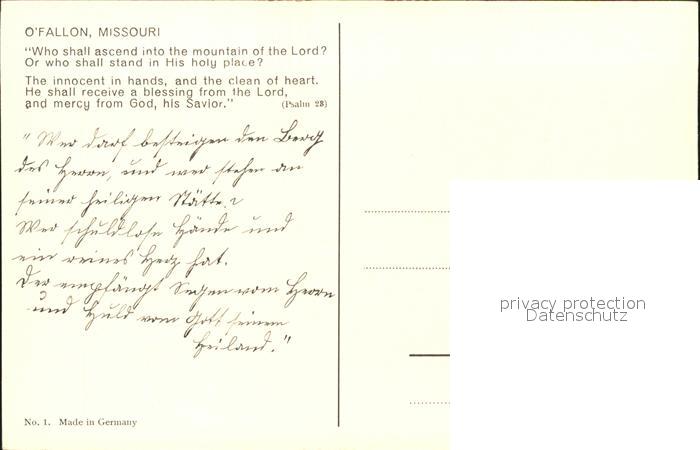 O'FALLON, MISSOURI
"Who shall ascend into the mountain of the Lord?
Or who shall stand in His holy place?
The innocent in hands, and the clean of heart.
He shall receive a blessing from the Lord,
and mercy from God, his Savior." (Psalm 23)
"Wer darf besteigen den Berg
des Herrn, und wer stehen an
seiner heiligen Stätte?
Wer schuldlose Hände und
ein reines Herz hat.
Der empfängt Segen vom Herrn
und Huld vom Gott seinem
Heiland."
No. 1. Made in Germany
privacy protection
Datenschutz